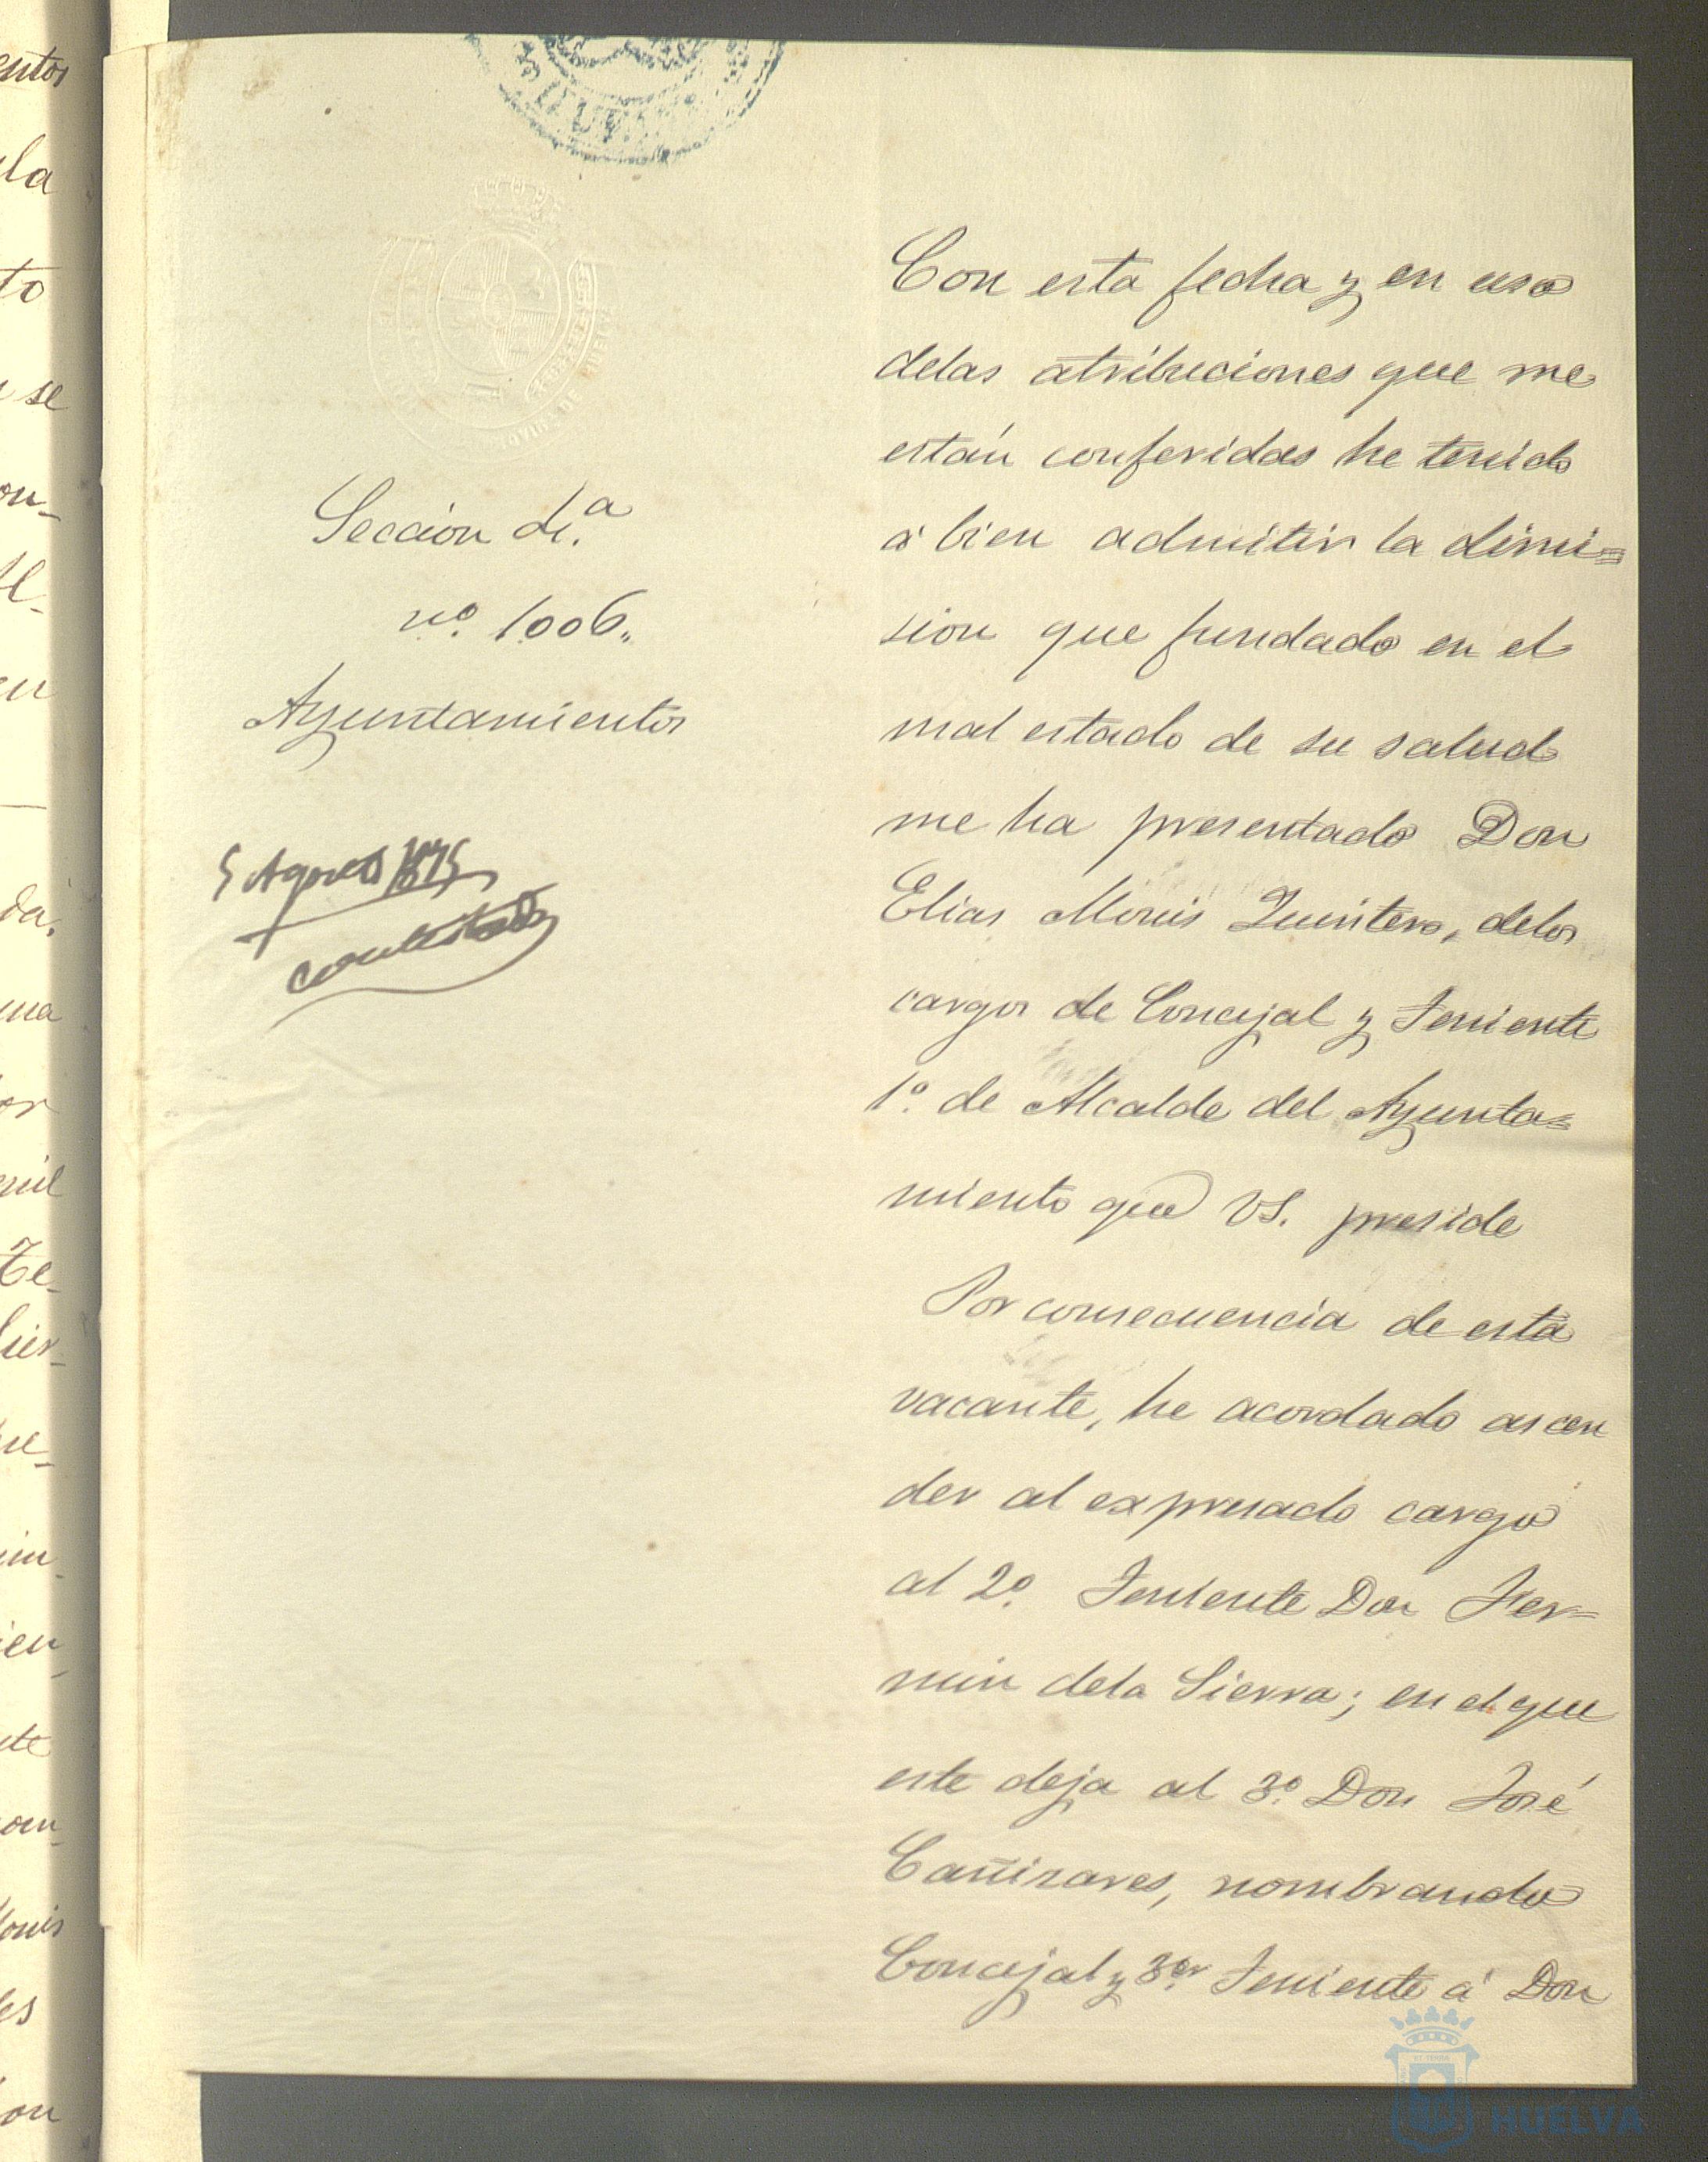 Seccion 1.ª
nº. 1006,,
Ayuntamientos
5 Agosto 1875
contestado
Con esta fecha y en uso
delas atribuciones que me
están conferidas he tenido
á bien admitir la dimi=
sion que fundado en el
mal estado de su salud
me ha presentado Don
Elias Monis Quintero, delos
cargos de Concejal y Teniente
1º. de Alcalde del Ayunta=
miento que VS. preside
Por consecuencia de esta
vacante, he acordado ascen
der al expresado cargo
al 2º. Teniente Don Fer=
min dela Sierra; en el que
este deja al 3º. Don José
Cañizares, nombrando
Concejal y 3er. Teniente á Don
HUELVA